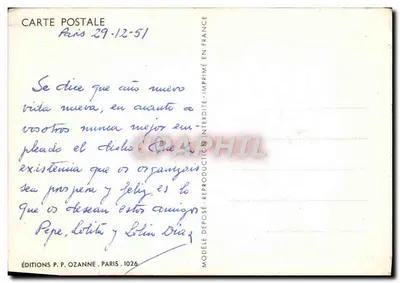 CARTE POSTALE
Paris 29-12-51
Se dice que año nuevo
vida nueva, en cuanto a
vosotros nunca mejor em-
pleado el dicho. Que la
existencia que os organizais
sea prospera y feliz es lo
que os desean estos amigos
Pepe, Lolita y Lolin Diaz
ÉDITIONS P. P. OZANNE. PARIS. 1026
MODÈLE DÉPOSÉ - REPRODUCTION INTERDITE - IMPRIMÉ EN FRANCE